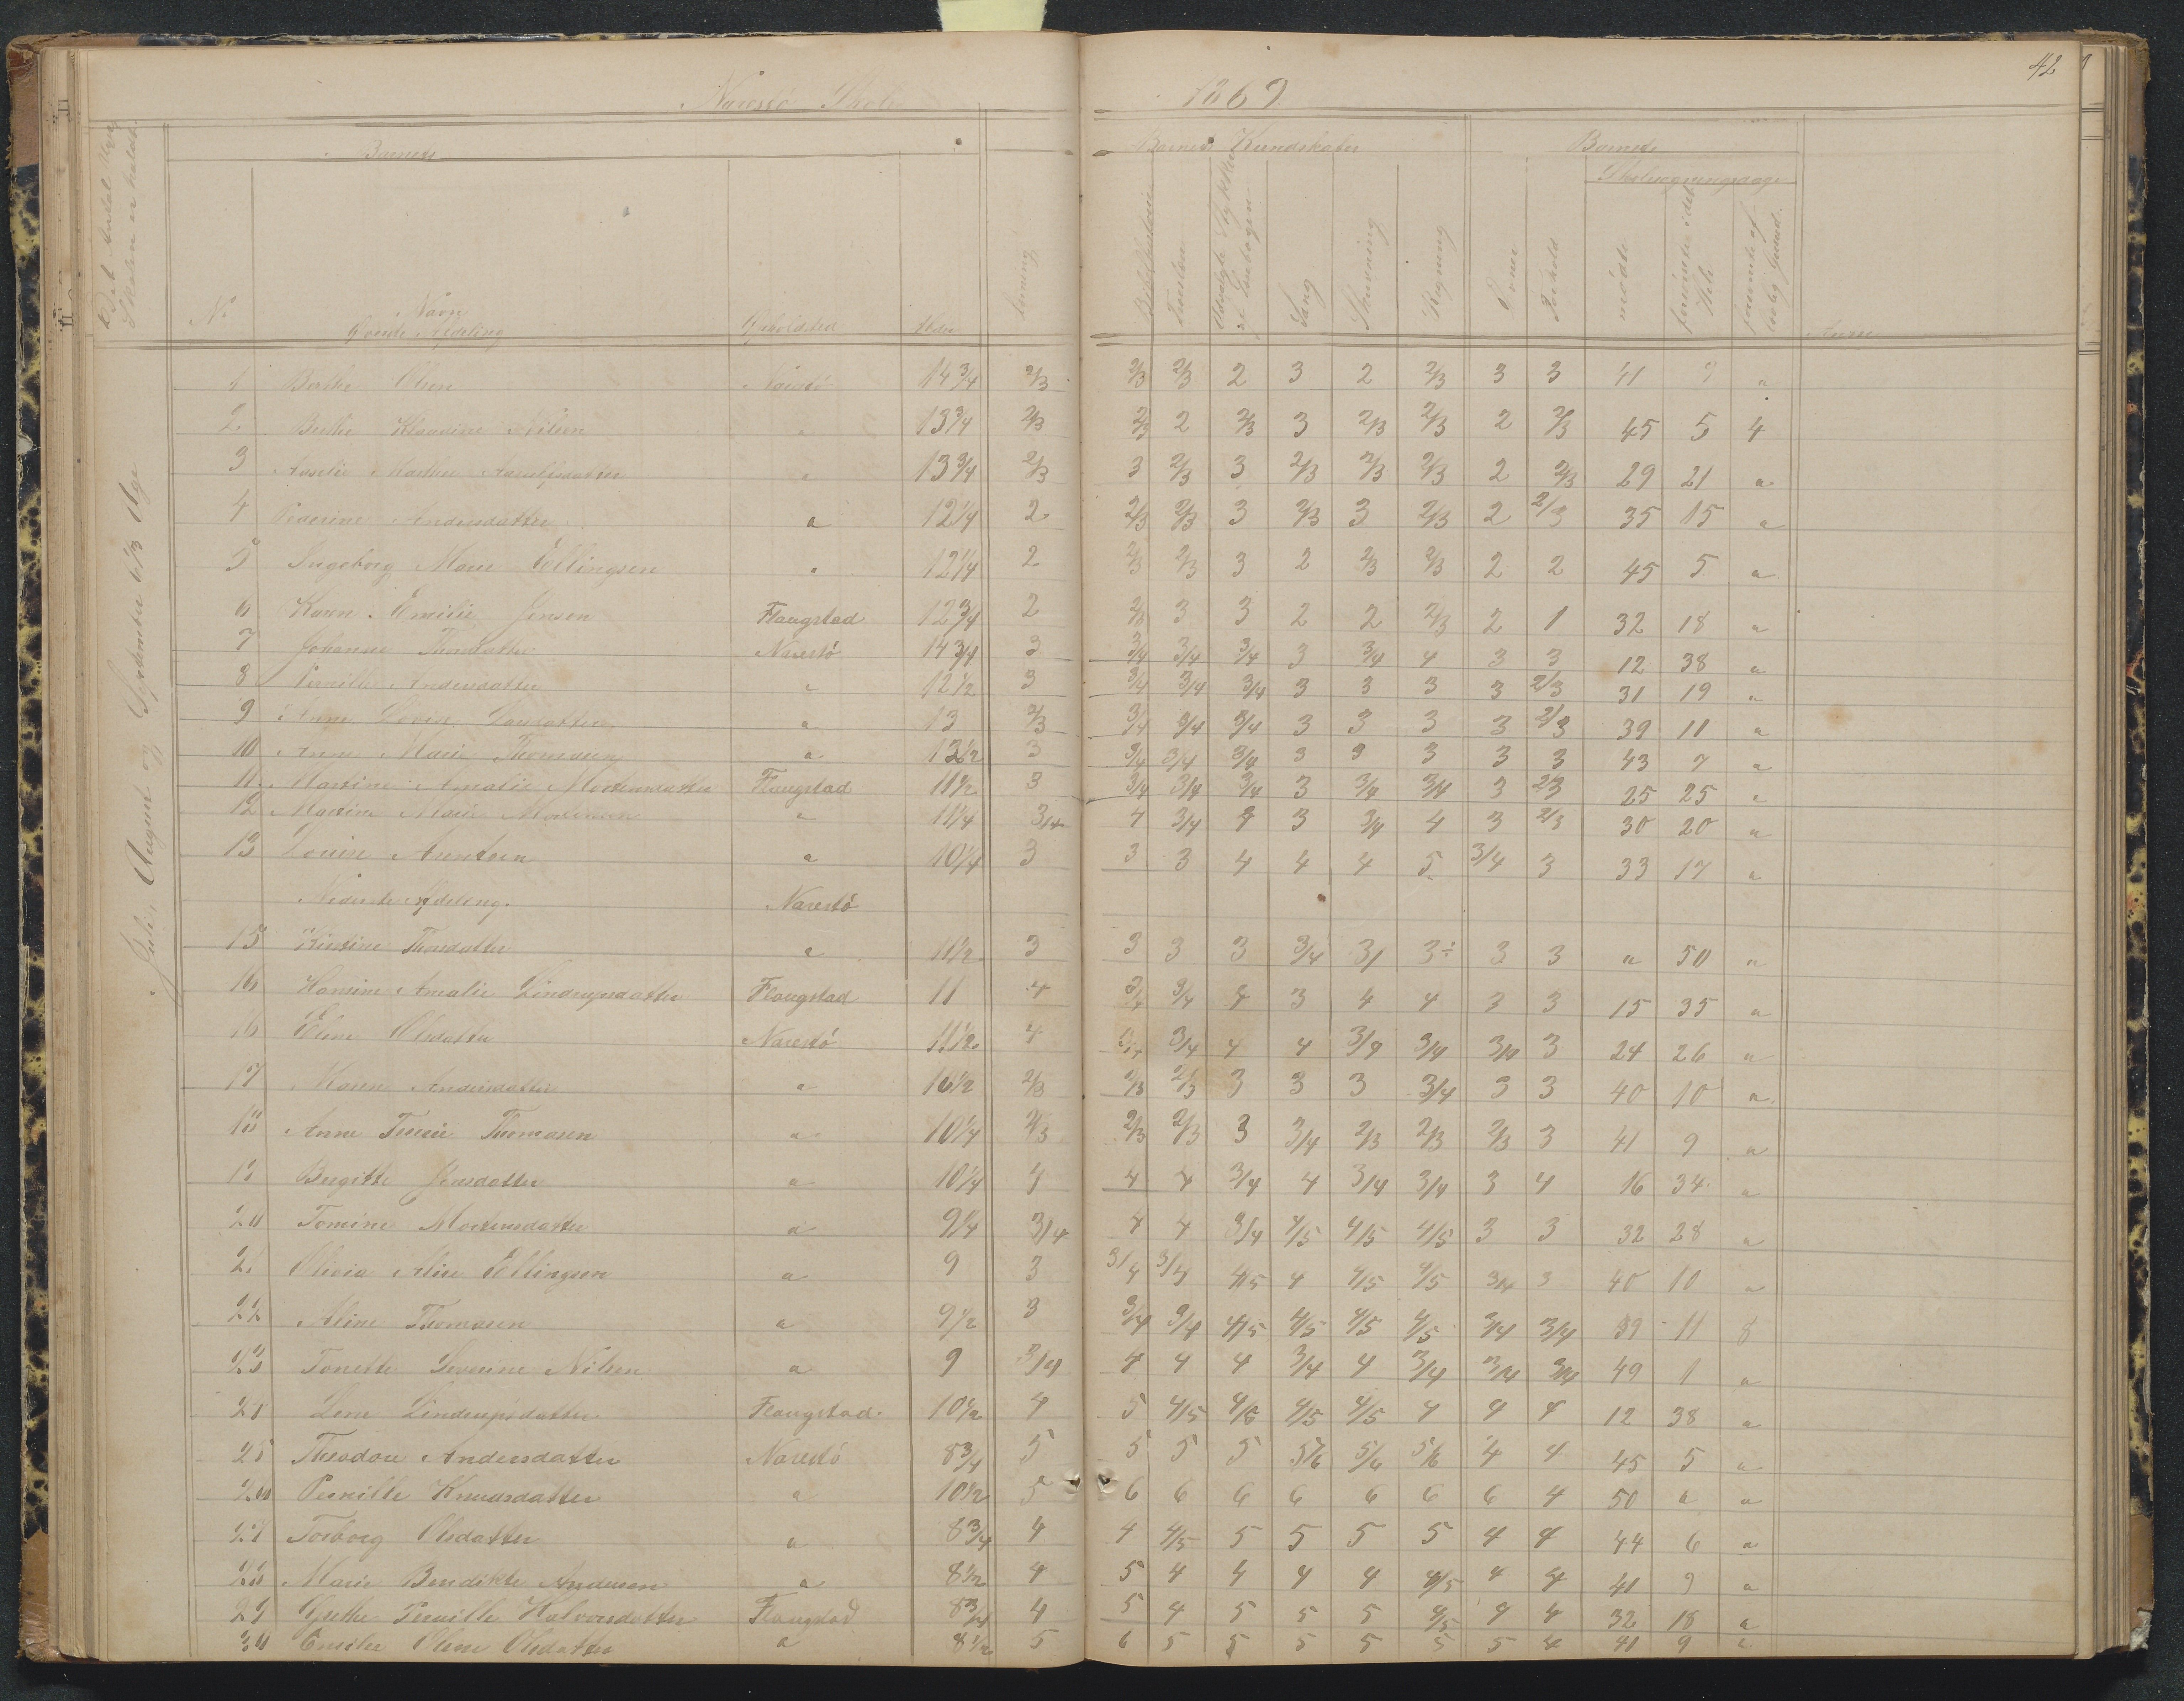 42
Narestö Skole 1869.
Det Antal Uger Skolen er holdt.
Barnets
Barnets Kundskaber
Barnets
Skolesøgningsdage
No Navn Opholdsted Alder Læsning Bibelhistorie Troeslære Udvalgte Stykker af Læsebogen Sang Skrivning Regning Evner Forhold mødte forsømte i det Hele forsømte af lovlig Grund. Anm
Øverste Afdeling
Juli, August og September 6 1/3 Uge
1 Berthe Olsen Narestö 14 3/4 2/3 2/3 2/3 2 3 2 2/3 3 3 41 9 "
2 Berthe Klaudine Nilsen " 13 3/4 2/3 2/3 2 2/3 3 2/3 2/3 2 2/3 45 5 4
3 Marthe " 13 3/4 2/3 3 2/3 3 2/3 2/3 2/3 2 2/3 29 21 "
4 Pederine Andersdatter " 12 1/4 2 2/3 2/3 3 2/3 3 2/3 2 2/3 35 15 "
5 Ingeborg Marie Ellingsen " 12 1/4 2 2/3 2/3 3 2 2/3 2/3 2 2 45 5 "
6 Karen Emilie Jensen Flaugstad 12 3/4 2 2/3 3 3 2 2 2/3 2 1 32 18 "
7 Johanne Thorsdatter Narestö 14 3/4 3 3/4 3/4 3/4 3 3/4 4 3 3 12 38 "
8 Pernille Andersdatter " 12 1/2 3 3/4 3/4 3/4 3 3 3 3 2/3 31 19 "
9 Anne Lovise Larsdatter " 13 2/3 3/4 3/4 3/4 3 3 3 3 2/3 39 11 "
10 Anne Marie Thomasen " 13 1/2 3 3/4 3/4 3/4 3 3 3 3 3 43 7 "
11 Martine Amalie Mortensdatter Flaugstad 11 1/2 3 3/4 3/4 3/4 3 3/4 3/4 3 2/3 25 25 "
12 Maren Marie " 11 1/4 3/4 4 3/4 4 3 3/4 4 3 2/3 30 20 "
13 Lovise Arntsen " 10 1/4 3 3 3 4 4 4 5 3/4 3 33 17 "
Nederste Afdeling. Narestö
15 Kirstine Thorsdatter " 11 1/2 3 3 3 3 3/4 3/ 3÷ 3 3 " 50 "
16 Hansine Amalie Lindrupsdatter Flaugstad 11 4 3/4 3/4 4 3 4 4 3 3 15 35 "
16 Eline Olsdatter Narestö 11 1/2 4 3/4 3/4 4 4 3/4 3/4 3/4 3 24 26 "
17 Maren Andersdatter " 10 1/2 2/3 2/3 2/3 3 3 3 3/4 3 3 40 10 "
18 Anne Thomasen " 10 1/4 2/3 2/3 2/3 3 3/4 2/3 2/3 2/3 3 41 9 "
19 Bergitte Jensdatter " 10 1/4 4 4 4 3/4 4 3/4 3/4 3 4 16 34 "
20 Tomine Mortensdatter " 9 1/4 3/4 4 4 3/4 4/5 4/5 4/5 3 3 32 28 "
21 Olivia Elise Ellingsen " 9 3 3/4 3/4 4/5 4 4/5 4/5 3/4 3 40 10 "
22 Aline Thomasen " 9 1/2 3 3/4 3/4 4/5 4/5 4/5 4/5 3/4 3/4 39 11 8
23 Tonette Severine Nilsen " 9 3/4 4 4 4 3/4 4 3/4 3/4 3/4 49 1 "
24 Lene Lindrupsdatter Flaugstad 10 1/2 4 5 4/5 4/5 4/5 4/5 4 4 4 12 38 "
25 Theodore Andersdatter Narestö 8 3/4 5 5 5 5 5/6 5/6 5/6 4 4 45 5 "
26 Pernille Knudsdatter " 10 1/2 5 6 6 6 6 6 6 6 4 50 " "
27 Torborg Olsdatter " 8 3/4 4 4 4/5 5 5 5 5 4 4 44 6 "
28 Marie Bendikte Andersen " 8 1/2 4 5 4 4 4 4 4/5 4 4 41 9 "
29 Grethe Pernille Halvorsdatter Flaugstad 8 3/4 4 5 4 5 5 5 4/5 4 4 32 18 "
30 Emilie Olene Olsdatter " 8 1/2 5 6 5 5 5 5 5 5 4 41 9 "